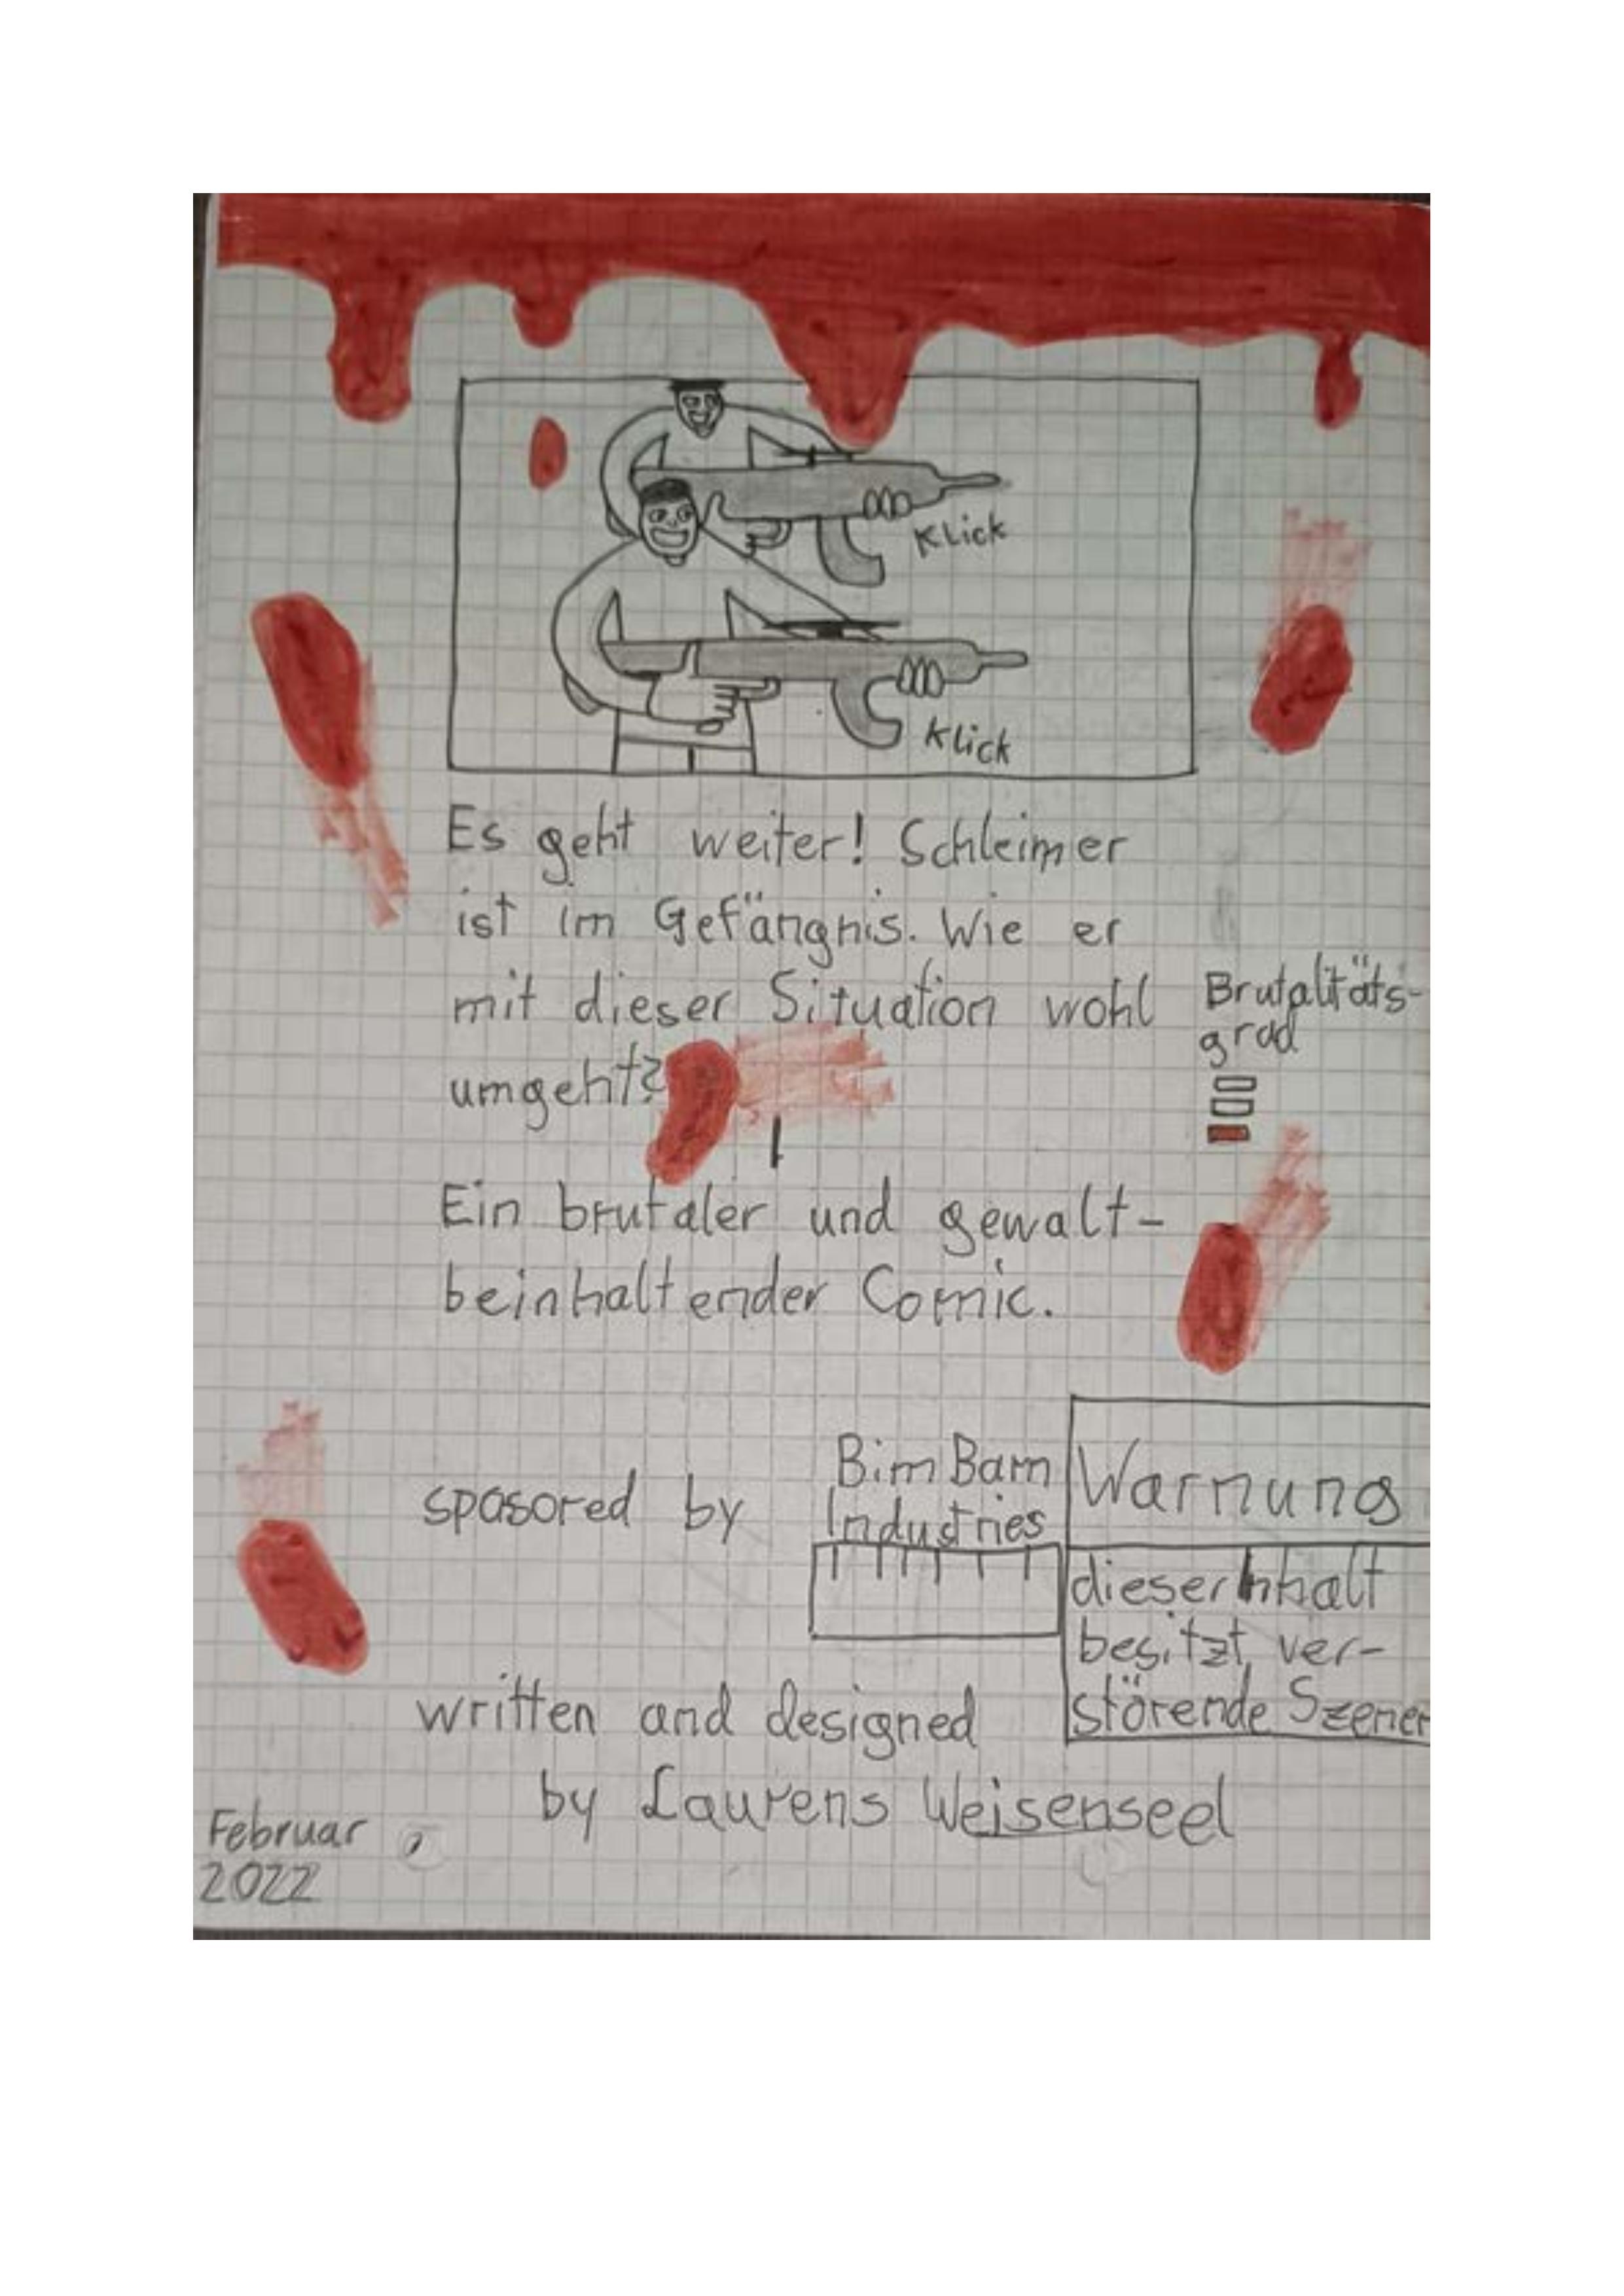 Klick
Klick
Es geht weiter! Schleimer
ist im Gefängnis. Wie er
mit dieser Situation wohl
umgeht?
Brutalitäts-
grad
Ein brutaler und gewalt-
beinhaltender Comic.
sposored by
Bim Bam
Industries
Warnung
dieser Inhalt
besitzt ver-
störende Szenen
written and designed
by Laurens Weisenseel
Februar
2022